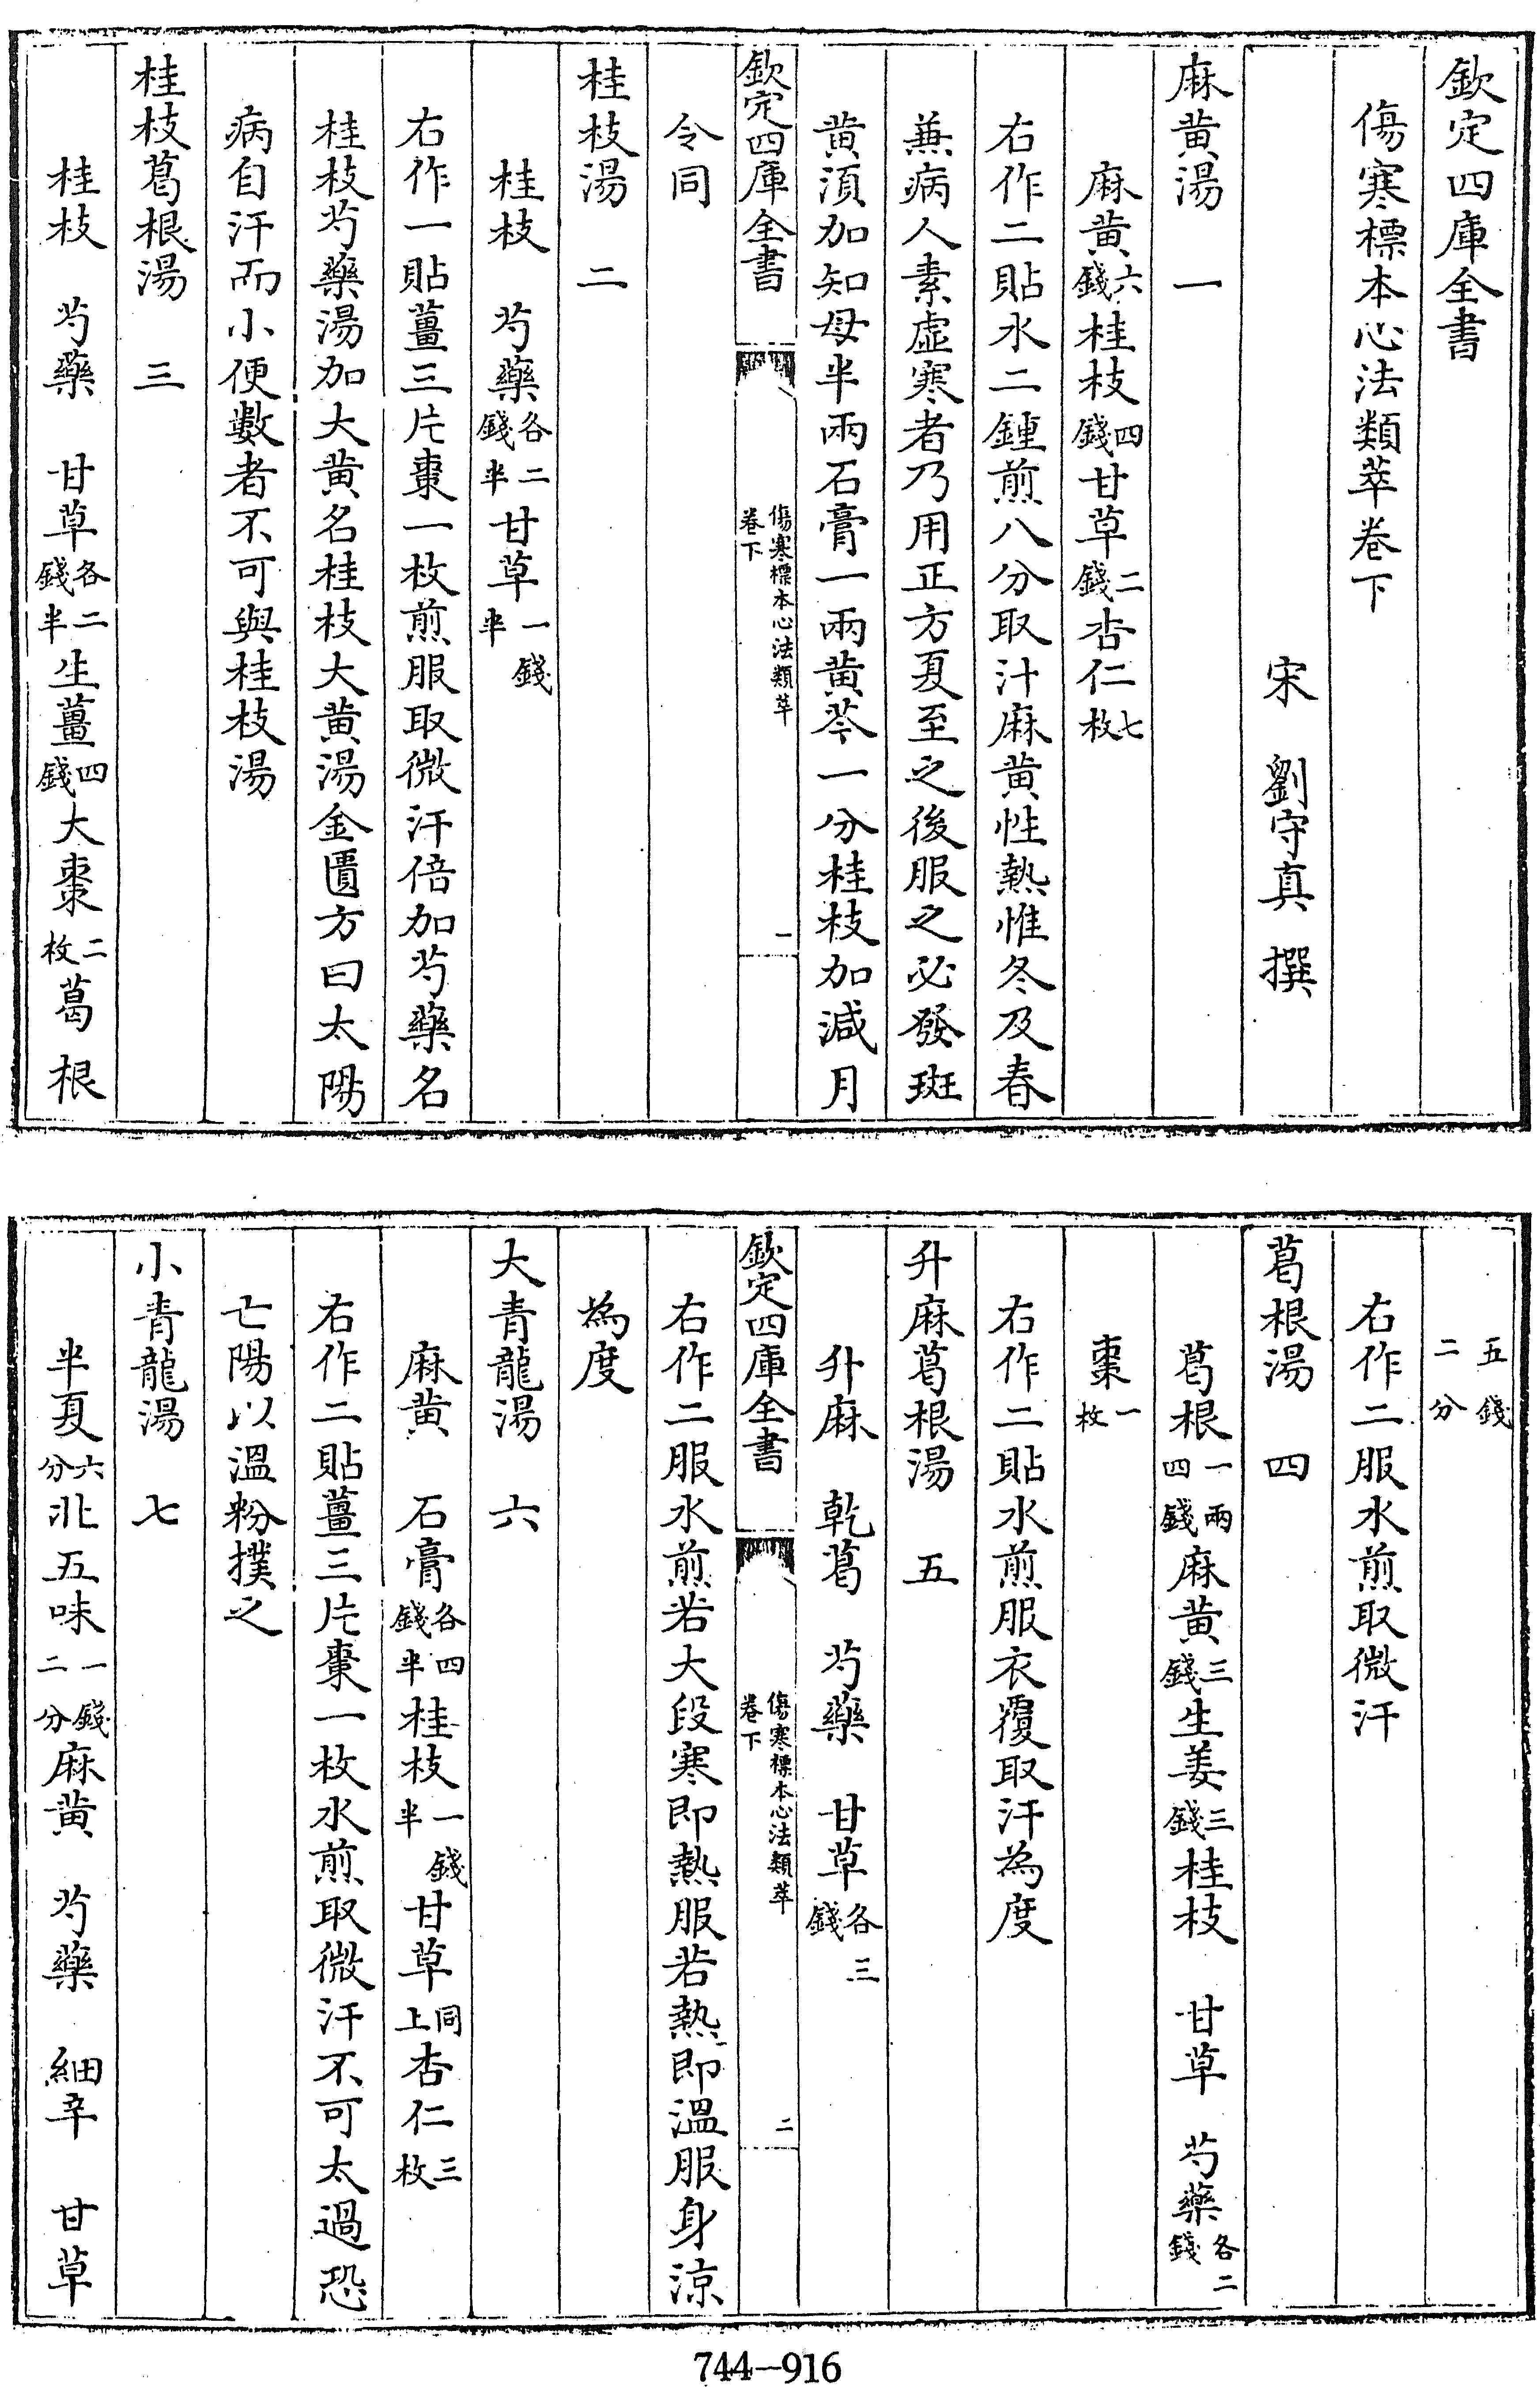 欽定四庫全書
傷寒標本心法類萃卷下
宋 劉守真 撰
麻黄湯 一
麻黄六錢桂枝四錢甘草二錢杏仁七枚
右作二貼水二鍾煎八分取汁麻黄性熱惟冬及春
兼病人素虛寒者乃用正方夏至之後服之必發斑
黄湏加知母半兩石膏一兩黄芩一分桂枝加減月
欽定四庫全書 傷寒標本心法類萃卷下 一
令同
桂枝湯 二
桂枝 芍藥各二錢半甘草一錢半
右作一貼薑三片棗一枚煎服取微汗倍加芍藥名
桂枝芍藥湯加大黄名桂枝大黄湯金匱方曰太陽
病自汗而小便數者不可與桂枝湯
桂枝葛根湯 三
桂枝 芍藥 甘草各二錢半生薑四錢大棗二枚葛根
五錢二分
右作二服水煎取微汗
葛根湯 四
葛根一兩四錢麻黄三錢生姜三錢桂枝 甘草 芍藥各二錢
棗一枚
右作二貼水煎服衣覆取汗為度
升麻葛根湯 五
升麻 乾葛 芍藥 甘草各三錢
欽定四庫全書 傷寒標本心法類萃卷下 二
右作二服水煎若大段寒即熱服若熱即溫服身涼
為度
大青龍湯 六
麻黄 石膏各四錢半桂枝一錢半甘草同上杏仁三枚
右作二貼薑三片棗一枚水煎取微汗不可太過恐
亡陽以溫粉撲之
小青龍湯 七
半夏六分北五味一錢二分麻黄 芍藥 細辛 甘草
744-916